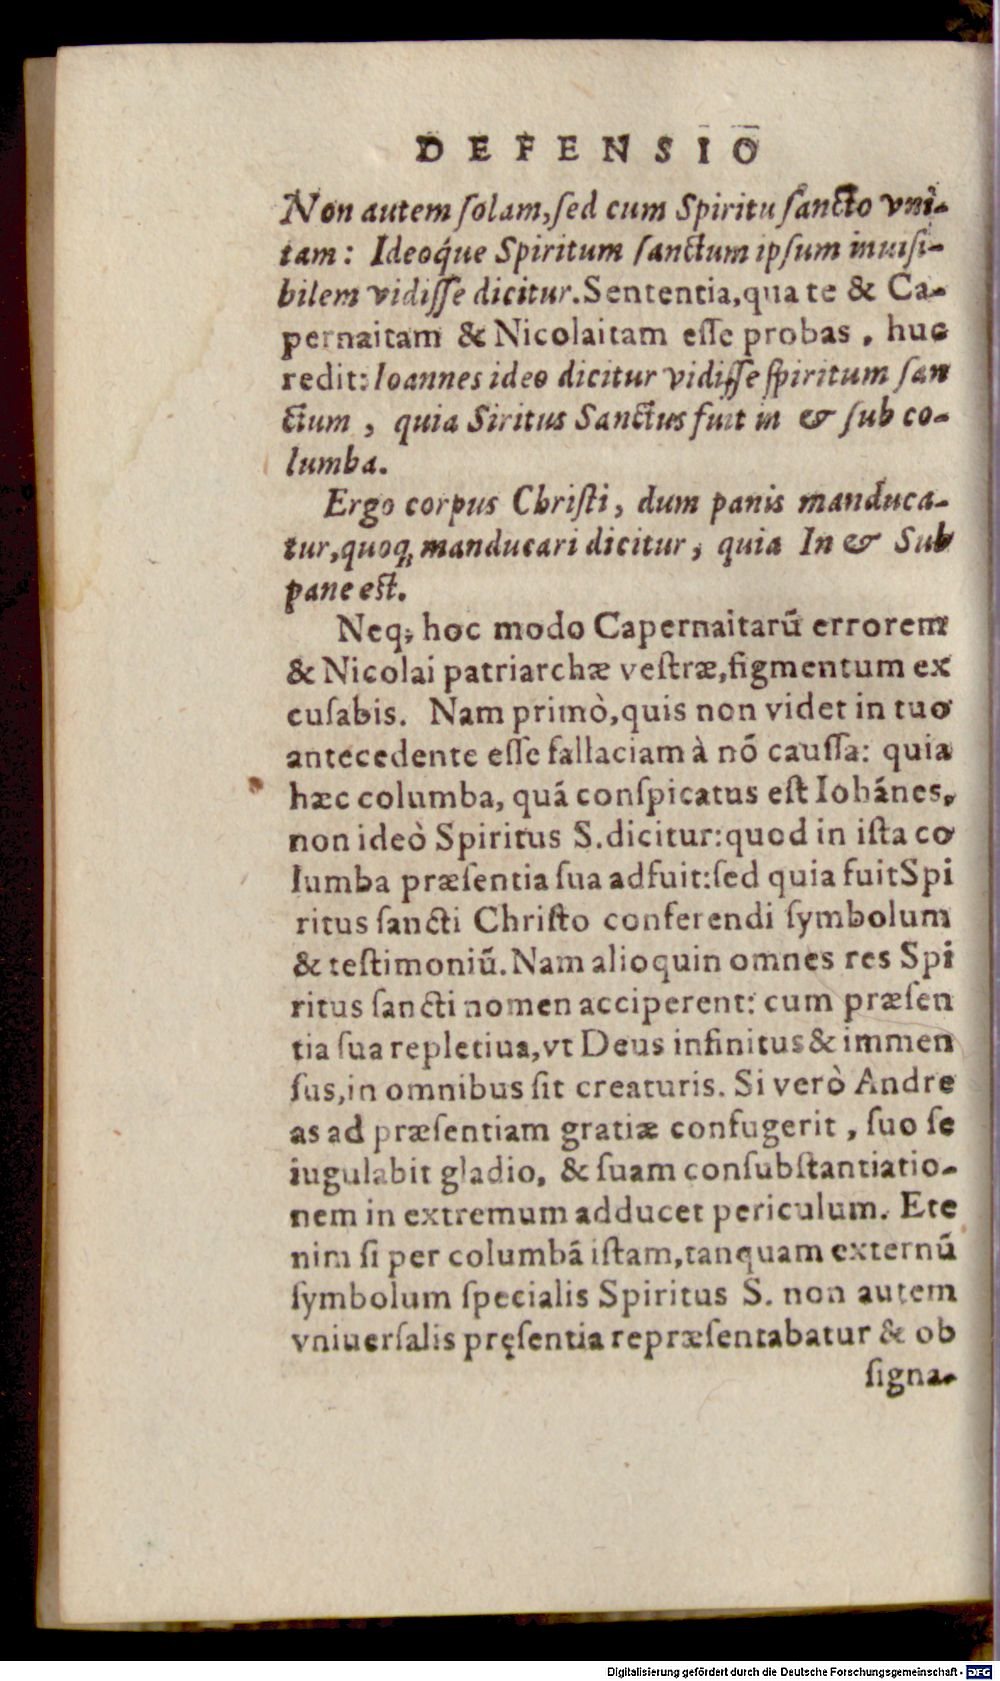 DEFENSIO
Non autem ſolam, ſed cum Spiritu ſancto vni-
tam: Ideoq́ue Spiritum ſanctum ipſum inuiſi-
bilem vidiſſe dicitur. Sententia, qua te & Ca-
pernaitam & Nicolaitam eſſe probas, huc
redit: Ioannes ideo dicitur vidiſſe ſpiritum ſan
ctum, quia Siritus Sanctus fuit in & ſub co-
lumba.
Ergo corpus Chriſti, dum panis manduca-
tur, quoq; manducari dicitur, quia In & Sub
pane eſt.
Neq; hoc modo Capernaitarũ errorem
& Nicolai patriarchæ veſtræ, figmentum ex
cuſabis. Nam primò, quis non videt in tuo
antecedente eſſe fallaciam à nõ cauſſa: quia
hæc columba, quã conſpicatus eſt Iohãnes,
non ideò Spiritus S. dicitur: quod in iſta co
lumba præſentia ſua adfuit: ſed quia fuit Spi
ritus ſancti Chriſto conferendi ſymbolum
& teſtimoniũ. Nam alioquin omnes res Spi
ritus ſancti nomen acciperent: cum præſen
tia ſua repletiua, vt Deus infinitus & immen
ſus, in omnibus ſit creaturis. Si verò Andre
as ad præſentiam gratiæ confugerit, ſuo ſe
iugulabit gladio, & ſuam conſubſtantiatio-
nem in extremum adducet periculum. Ete
nim ſi per columbã iſtam, tanquam externũ
ſymbolum ſpecialis Spiritus S. non autem
vniuerſalis pręſentia repræſentabatur & ob
ſigna-
Digitalisierung gefördert durch die Deutsche Forschungsgemeinschaft - DFG